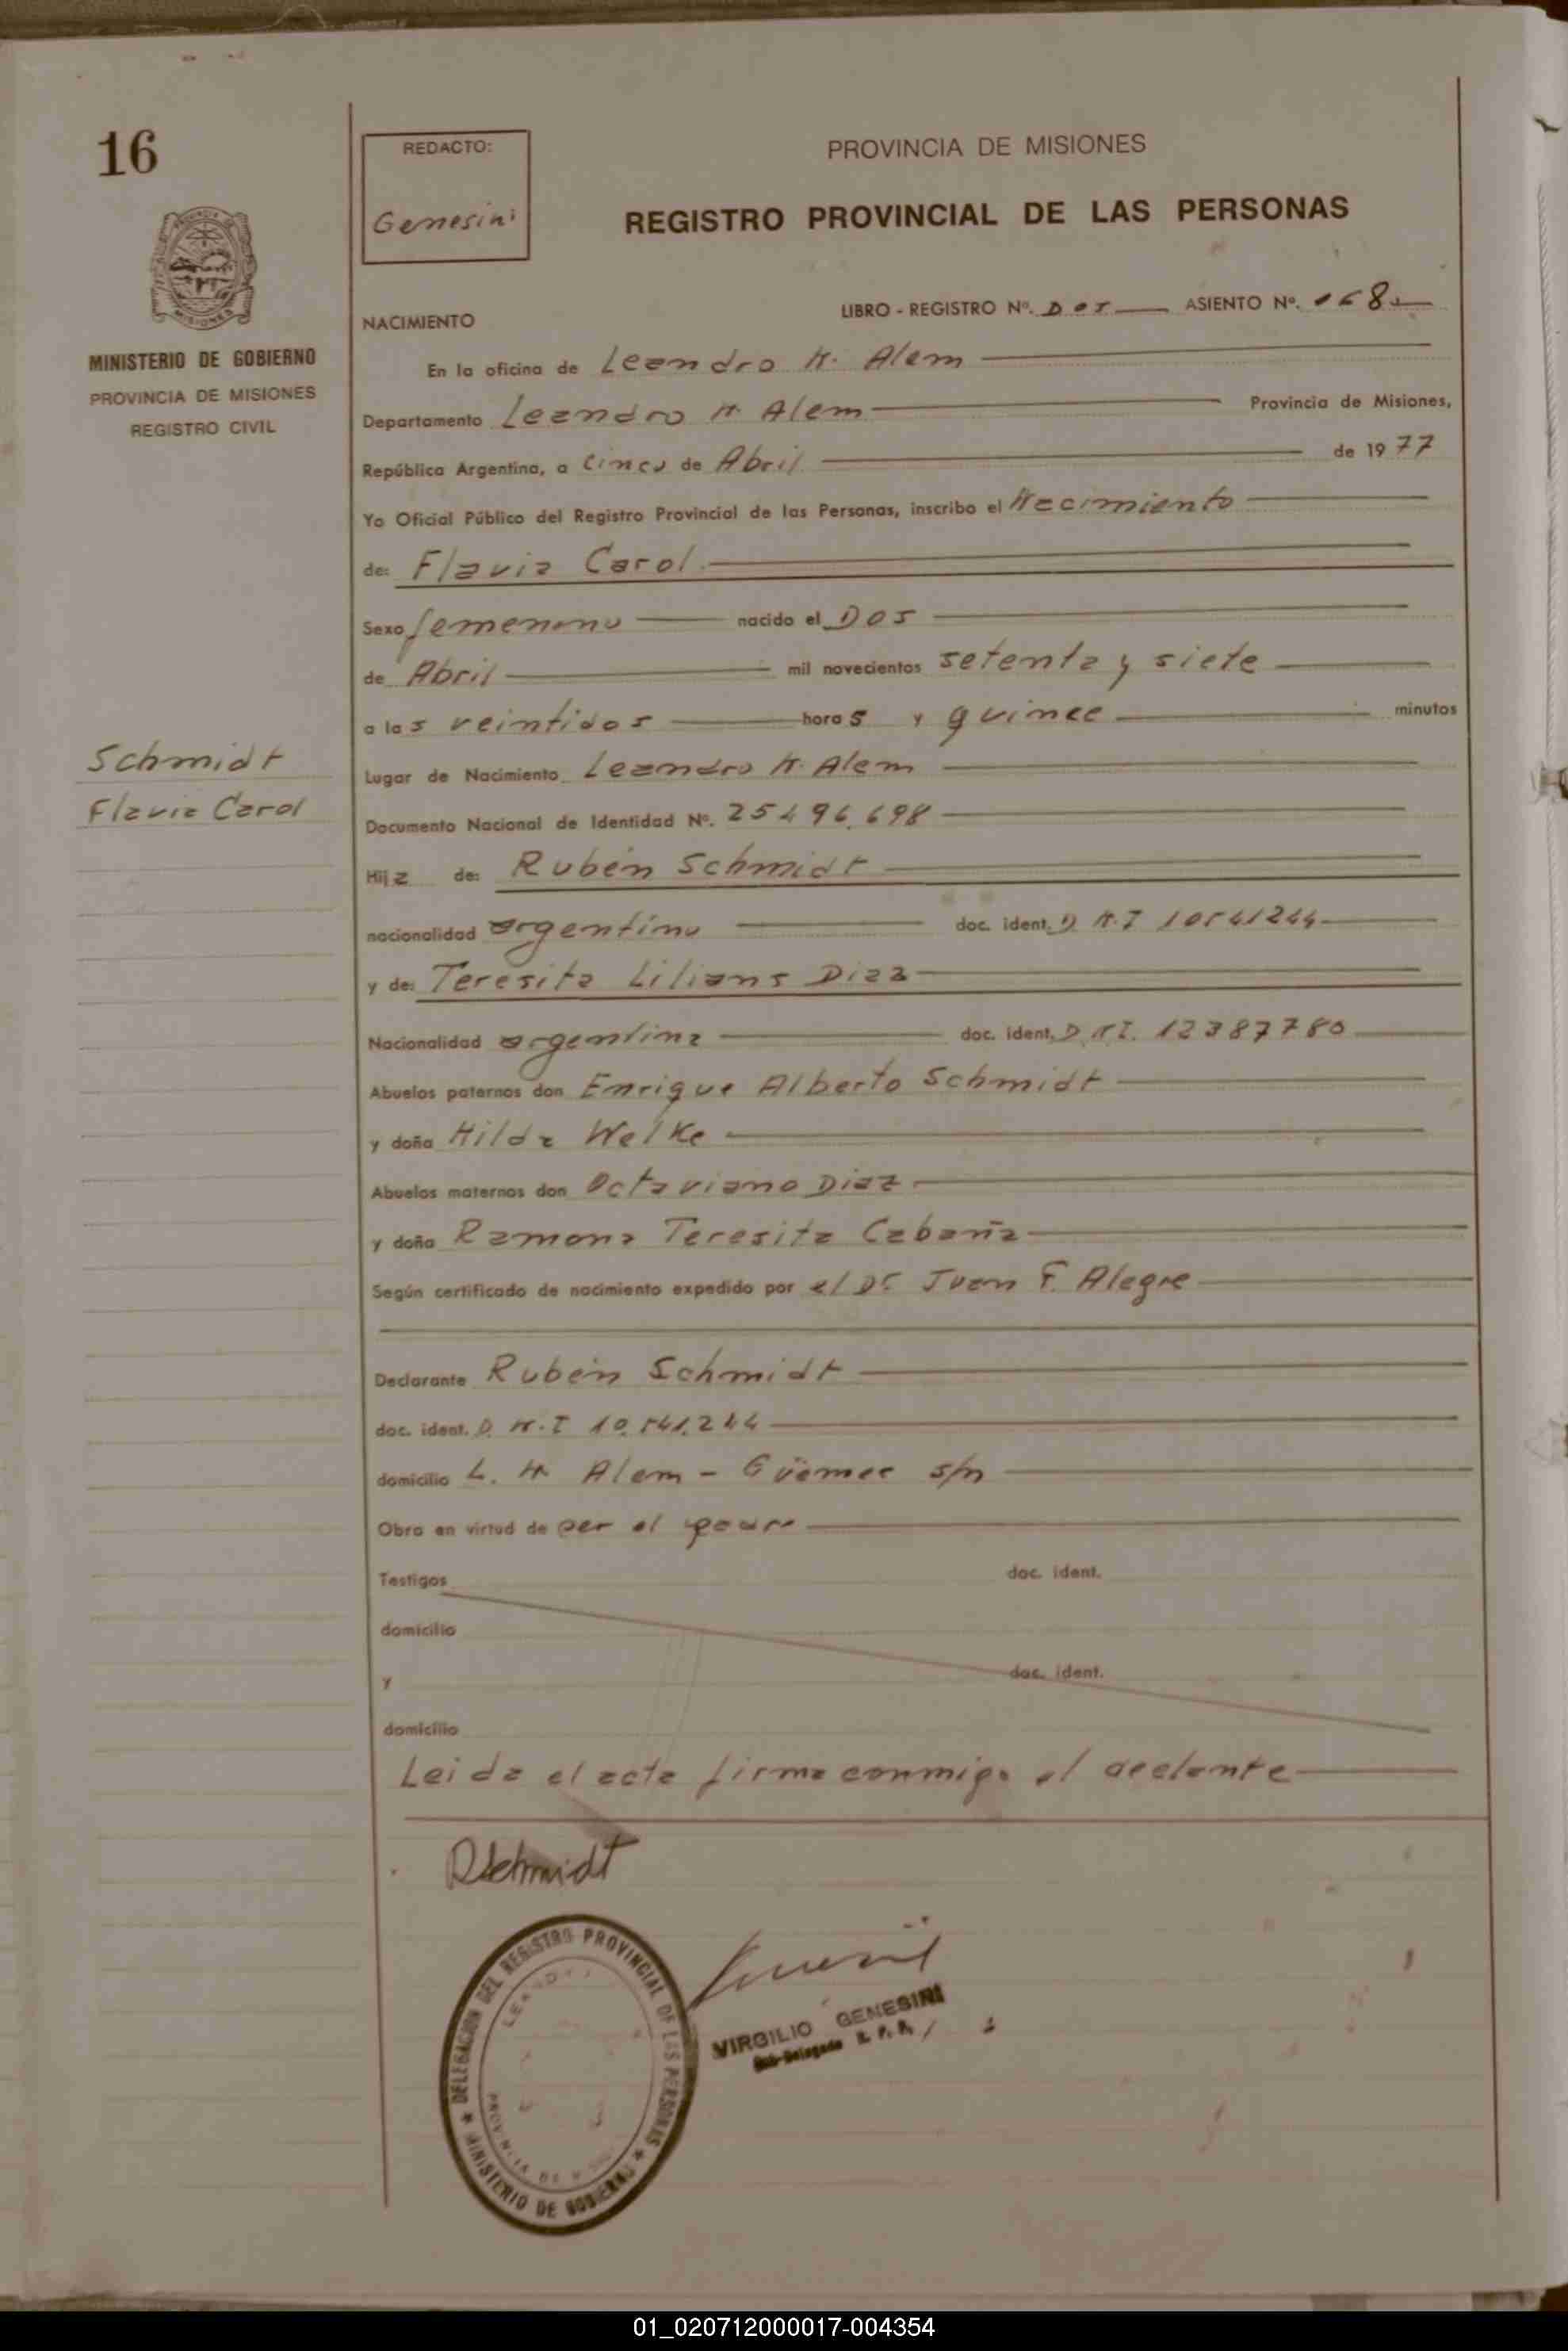 16
REDACTO:
Genesini
PROVINCIA DE MISIONES
REGISTRO PROVINCIAL DE LAS PERSONAS
MISIONES
MINISTERIO DE GOBIERNO
PROVINCIA DE MISIONES
REGISTRO CIVIL
NACIMIENTO
LIBRO - REGISTRO Nº. Dos ASIENTO Nº. 068
En la oficina de Leandro N. Alem
Departamento Leandro N. Alem Provincia de Misiones,
República Argentina, a cinco de Abril de 1977
Yo Oficial Público del Registro Provincial de las Personas, inscribo el Nacimiento
de: Flavia Carol
Sexo femenino nacido el Dos
de Abril mil novecientos setenta y siete
a las veintidos horas y quince minutos
Schmidt
Flavia Carol
Lugar de Nacimiento Leandro N. Alem
Documento Nacional de Identidad Nº. 25496.698
Hija de: Rubén Schmidt
nacionalidad argentino doc. ident. D N.I 10541244
y de: Teresita Liliana Diaz
Nacionalidad argentina doc. ident. D.N.I. 12387780
Abuelos paternos don Enrique Alberto Schmidt
y doña Hilda Welke
Abuelos maternos don Octaviano Diaz
y doña Ramona Teresita Cabaña
Según certificado de nacimiento expedido por el Dr. Juan F. Alegre
Declarante Rubén Schmidt
doc. ident. D. N.I 10.541.244
domicilio L. N Alem - Güemes s/n
Obra en virtud de ser el padre
Testigos doc. ident.
domicilio
y doc. ident.
domicilio
Leida el acta firma conmigo el declante
RSchmidt
DELEGACION DEL REGISTRO PROVINCIAL DE LAS PERSONAS
MINISTERIO DE GOBIERNO
VIRGILIO GENESINI
Sub-Delegado R. P. P.
01_020712000017-004354